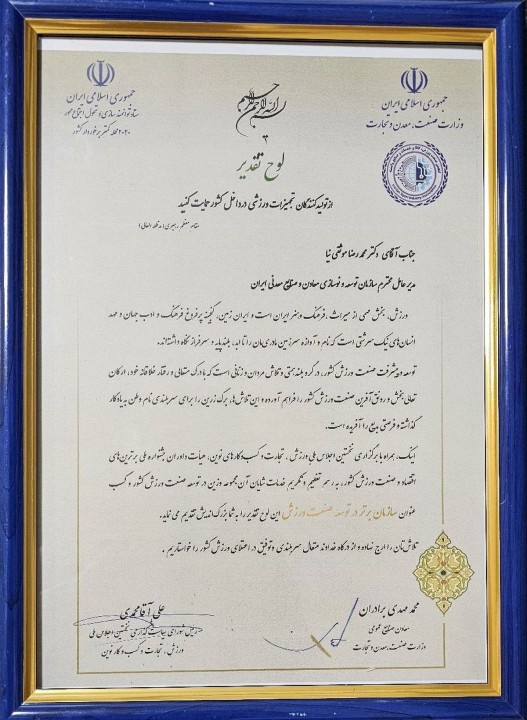 بسم الله الرحمن الرحیم
جمهوری اسلامی ایران
وزارت صنعت، معدن و تجارت
جمهوری اسلامی ایران
ستاد توانمندسازی و تحول اجتماع محور
۲۰۲۰ محله کمتر برخوردار کشور
لوح تقدیر
از تولیدکنندگان تجهیزات ورزشی در داخل کشور حمایت کنید
مقام معظم رهبری (مدظله العالی)
جناب آقای دکتر محمدرضا موثقی نیا
مدیرعامل محترم سازمان توسعه و نوسازی معادن و صنایع معدنی ایران
ورزش، بخش مهمی از میراث، فرهنگ و هنر ایران است و ایران زمین، گنجینه پرفروغ فرهنگ و ادب جهان و مهد
انسان‌های نیک سرشتی است که نام و آوازه سرزمین مادری‌مان را تا ابد، بلندپایه و سرفراز نگاه داشته‌اند.
توسعه و پیشرفت صنعت ورزش کشور، در گرو بلندهمتی و تلاش مردان و زنانی است که با درک متعالی و رفتار خلاقانه خود، ارکان
تعالی بخش و رونق آفرین صنعت ورزش کشور را فراهم آورده و این تلاش‌ها، برگ زرین را برای سربلندی نام وطن به یادگار
گذاشته و فرصتی بدیع را آفریده است.
اینک، همراه با برگزاری نخستین اجلاس ملی ورزش، تجارت و کسب و کارهای نوین، هیات داوران جشنواره ملی برترین‌های
اقتصاد و صنعت ورزش کشور، به رسم تعظیم و تکریم خدمات شایان آن مجموعه وزین در توسعه صنعت ورزش کشور و کسب
عنوان سازمان برتر در توسعه صنعت ورزش این لوح تقدیر را به شما بزرگ اندیش تقدیم می نماید.
تلاش‌تان را ارج نهاده و از درگاه خداوند متعال سربلندی و توفیق در اعتلای ورزش کشور را خواستاریم.
محمد مهدی برادران
معاون صنایع عمومی
وزارت صنعت، معدن و تجارت
علی آقامحمدی
رئیس شورای سیاست گذاری نخستین اجلاس ملی
ورزش، تجارت و کسب و کار نوین